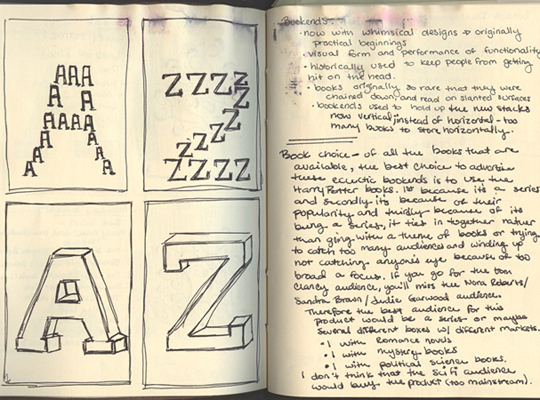 AAA
A A
AAAA
A A
A A
A A
ZZZZ
Z
Z
Z
Z
Z
ZZZZ
A
Z
Bookends:
• now with whimsical designs → originally
practical beginnings
• visual form and performance of functionality
• historically used to keep people from getting
hit on the head.
• books originally so rare that they were
chained down and read on slanted surfaces
• bookends used to hold up the new stacks
now vertical, instead of horizontal - too
many books to store horizontally.
Book choice - of all the books that are
available, the best choice to advertise
these eclectic bookends is to use the
Harry Potter books. 1st because its a series
and secondly its because of their
popularity and thirdly because of its
being a series, it ties in together rather
than going with a theme of books or trying
to catch too many audiences and winding up
not catching anyone's eye because of too
broad a focus. if you go for the Tom
Clancy audience, you'll miss the Nora Roberts/
Sandra Brown/Julie Garwood audience.
Therefore the best audience for this
product would be a series or maybe
several different boxes w/ different markets.
• 1 with romance novels
• 1 with mystery books
• 1 with political science books.
I don't think that the sci fi audience
would buy the product (too mainstream).